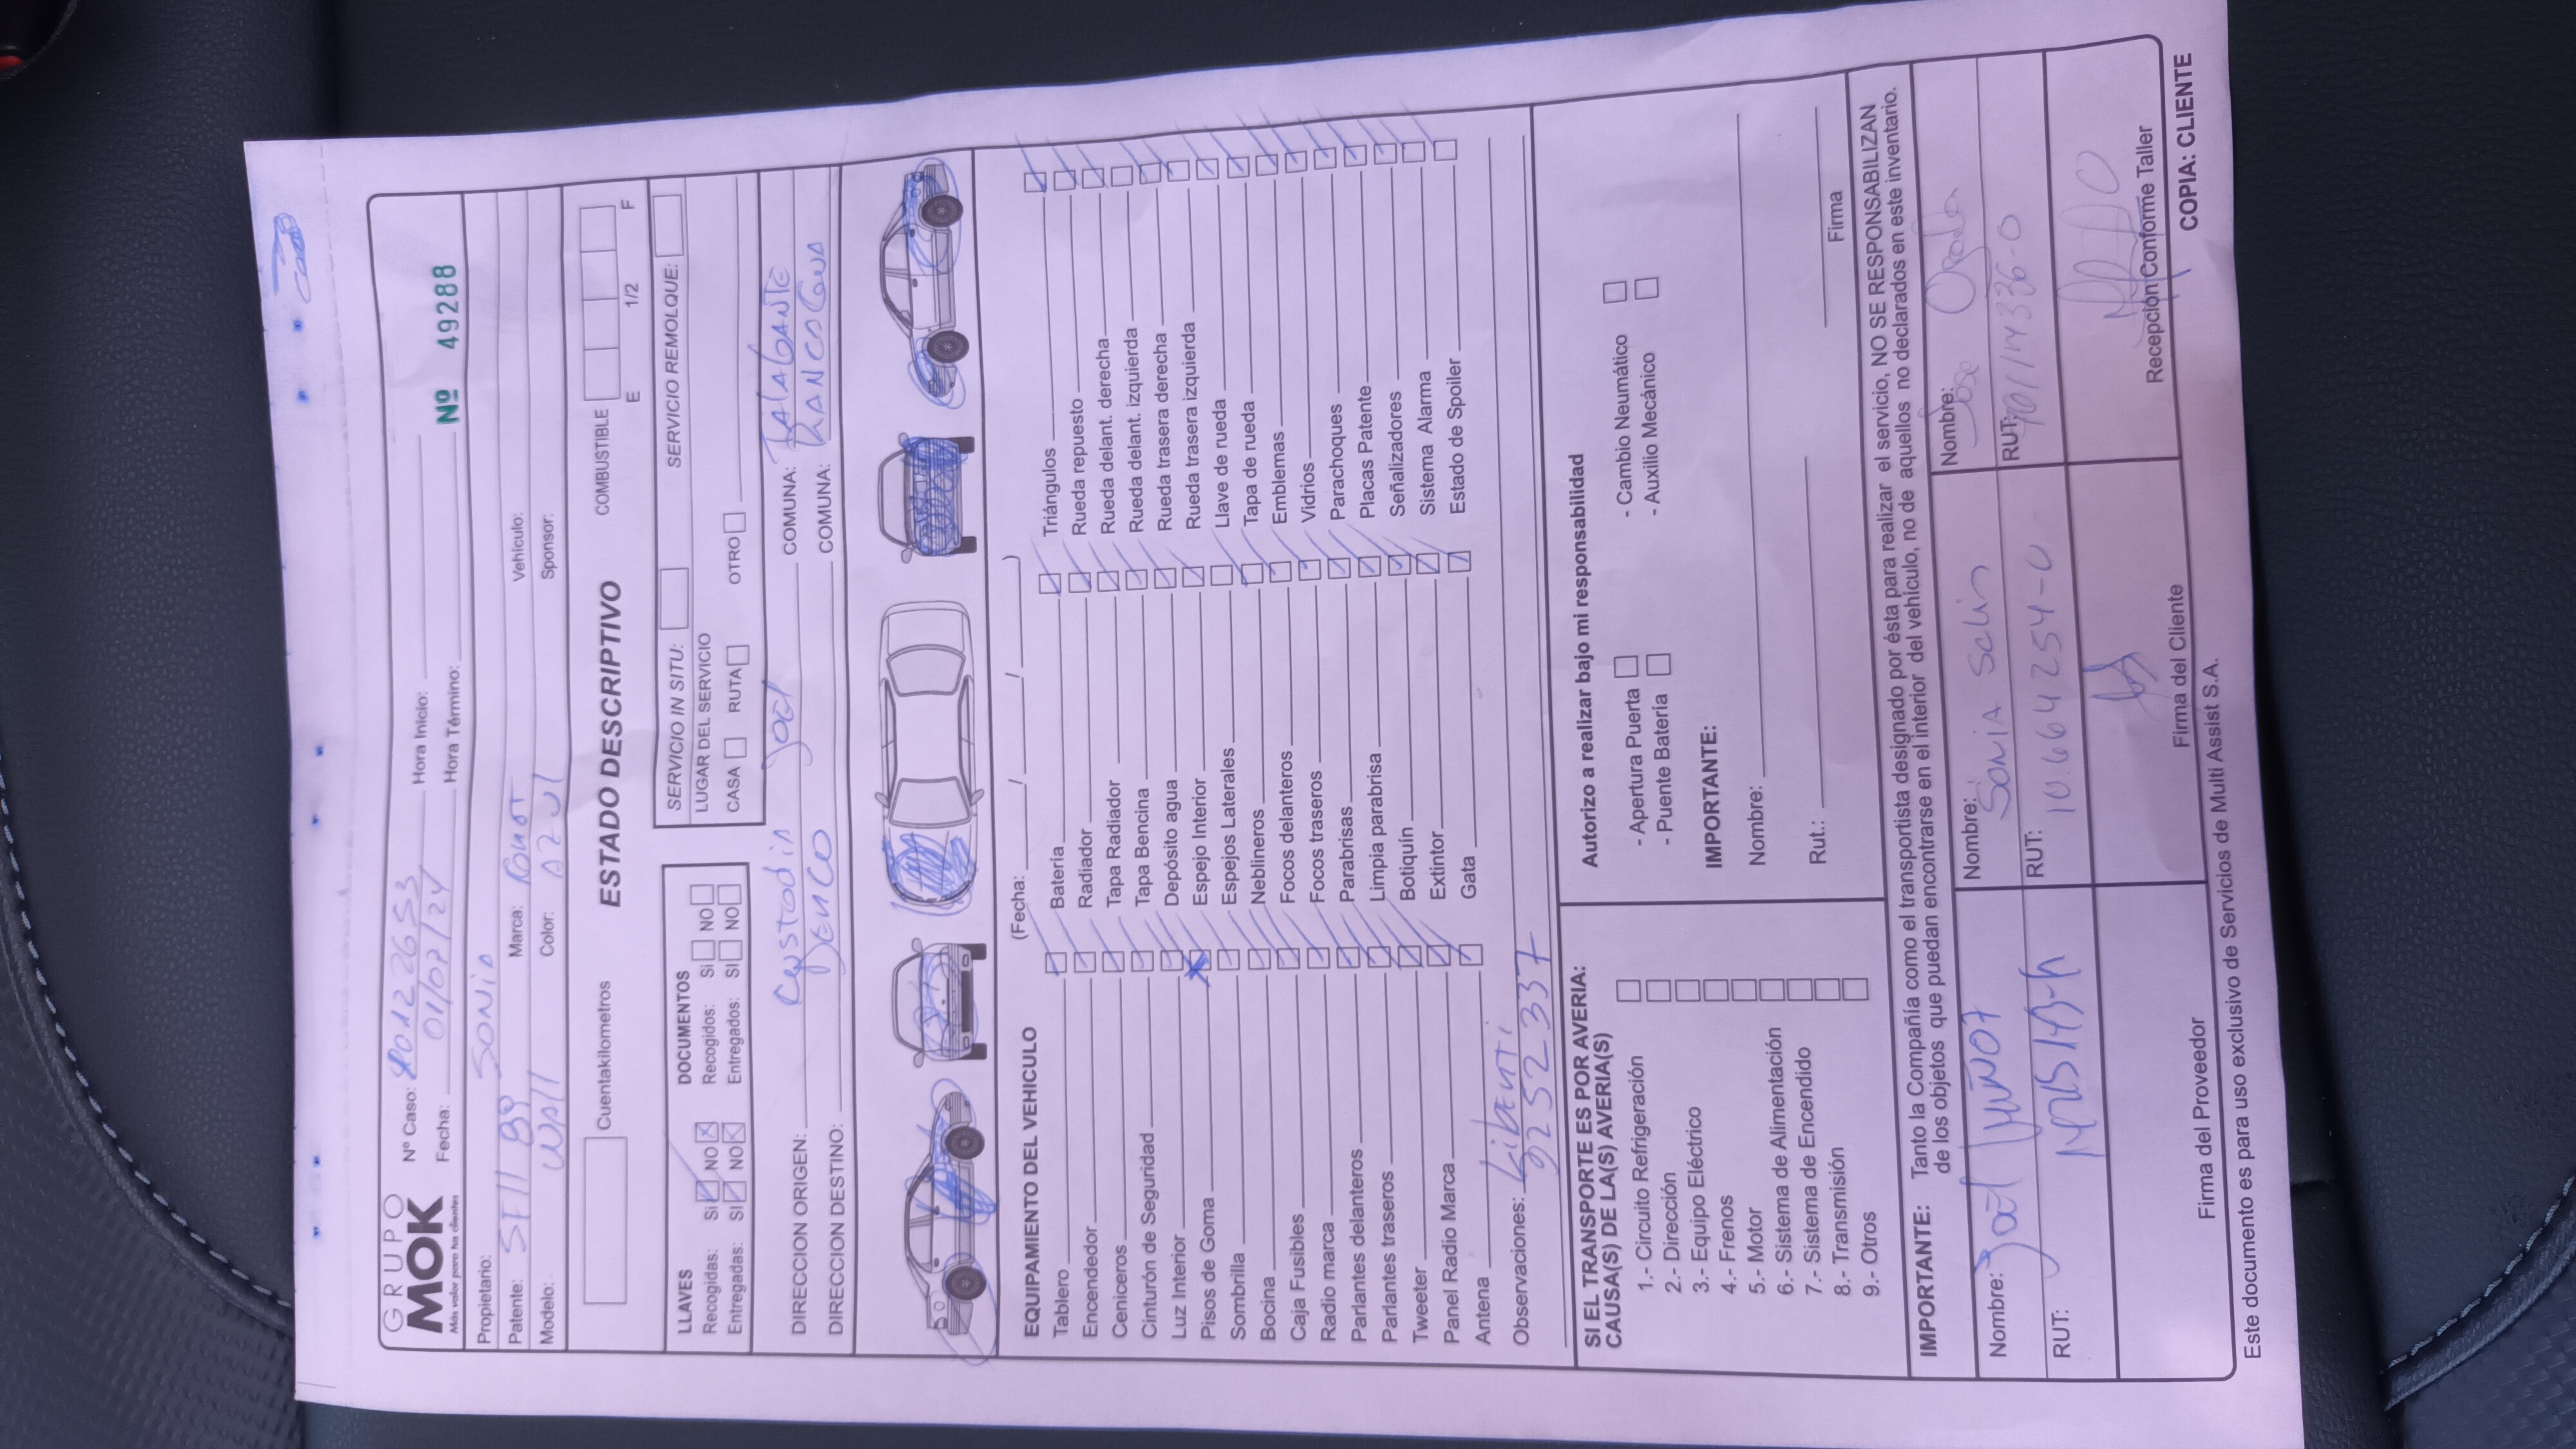 GRUPO
MOK
Más valor para tus clientes
Nº Caso: Hora Inicio:
Fecha: 01/02/24 Hora Término: Nº 49288
Propietario: SONIA
Patente: Marca: Vehículo:
Modelo: Color: AZUL Sponsor:
Cuentakilometros ESTADO DESCRIPTIVO COMBUSTIBLE
E 1/2 F
LLAVES DOCUMENTOS
Recogidas: Si NO Recogidos: Si NO
Entregadas: SI NO Entregados: SI NO
SERVICIO IN SITU: SERVICIO REMOLQUE:
LUGAR DEL SERVICIO
CASA RUTA OTRO
DIRECCION ORIGEN: Custodia Joel COMUNA: TALAGANTE
DIRECCION DESTINO: COMUNA: RANCAGUA
EQUIPAMIENTO DEL VEHICULO (Fecha: / / )
Tablero Batería Triángulos
Encendedor Radiador Rueda repuesto
Ceniceros Tapa Radiador Rueda delant. derecha
Cinturón de Seguridad Tapa Bencina Rueda delant. izquierda
Luz Interior Depósito agua Rueda trasera derecha
Pisos de Goma Espejo Interior Rueda trasera izquierda
Sombrilla Espejos Laterales Llave de rueda
Bocina Neblineros Tapa de rueda
Caja Fusibles Focos delanteros Emblemas
Radio marca Focos traseros Vidrios
Parlantes delanteros Parabrisas Parachoques
Parlantes traseros Limpia parabrisa Placas Patente
Tweeter Botiquín Señalizadores
Panel Radio Marca Extintor Sistema Alarma
Antena Gata Estado de Spoiler
Observaciones:
9252337
SI EL TRANSPORTE ES POR AVERIA:
CAUSA(S) DE LA(S) AVERIA(S)
1.- Circuito Refrigeración
2.- Dirección
3.- Equipo Eléctrico
4.- Frenos
5.- Motor
6.- Sistema de Alimentación
7.- Sistema de Encendido
8.- Transmisión
9.- Otros
Autorizo a realizar bajo mi responsabilidad
- Apertura Puerta - Cambio Neumático
- Puente Batería - Auxilio Mecánico
IMPORTANTE:
Nombre:
Rut.: Firma
IMPORTANTE: Tanto la Compañía como el transportista designado por ésta para realizar el servicio, NO SE RESPONSABILIZAN
de los objetos que puedan encontrarse en el interior del vehículo, no de aquellos no declarados en este inventario.
Nombre: Joel Muñoz Nombre: SONIA Nombre: Jose
RUT: RUT: 10.664254-0 RUT:
Firma del Proveedor Firma del Cliente Recepción Conforme Taller
Este documento es para uso exclusivo de Servicios de Multi Assist S.A. COPIA: CLIENTE